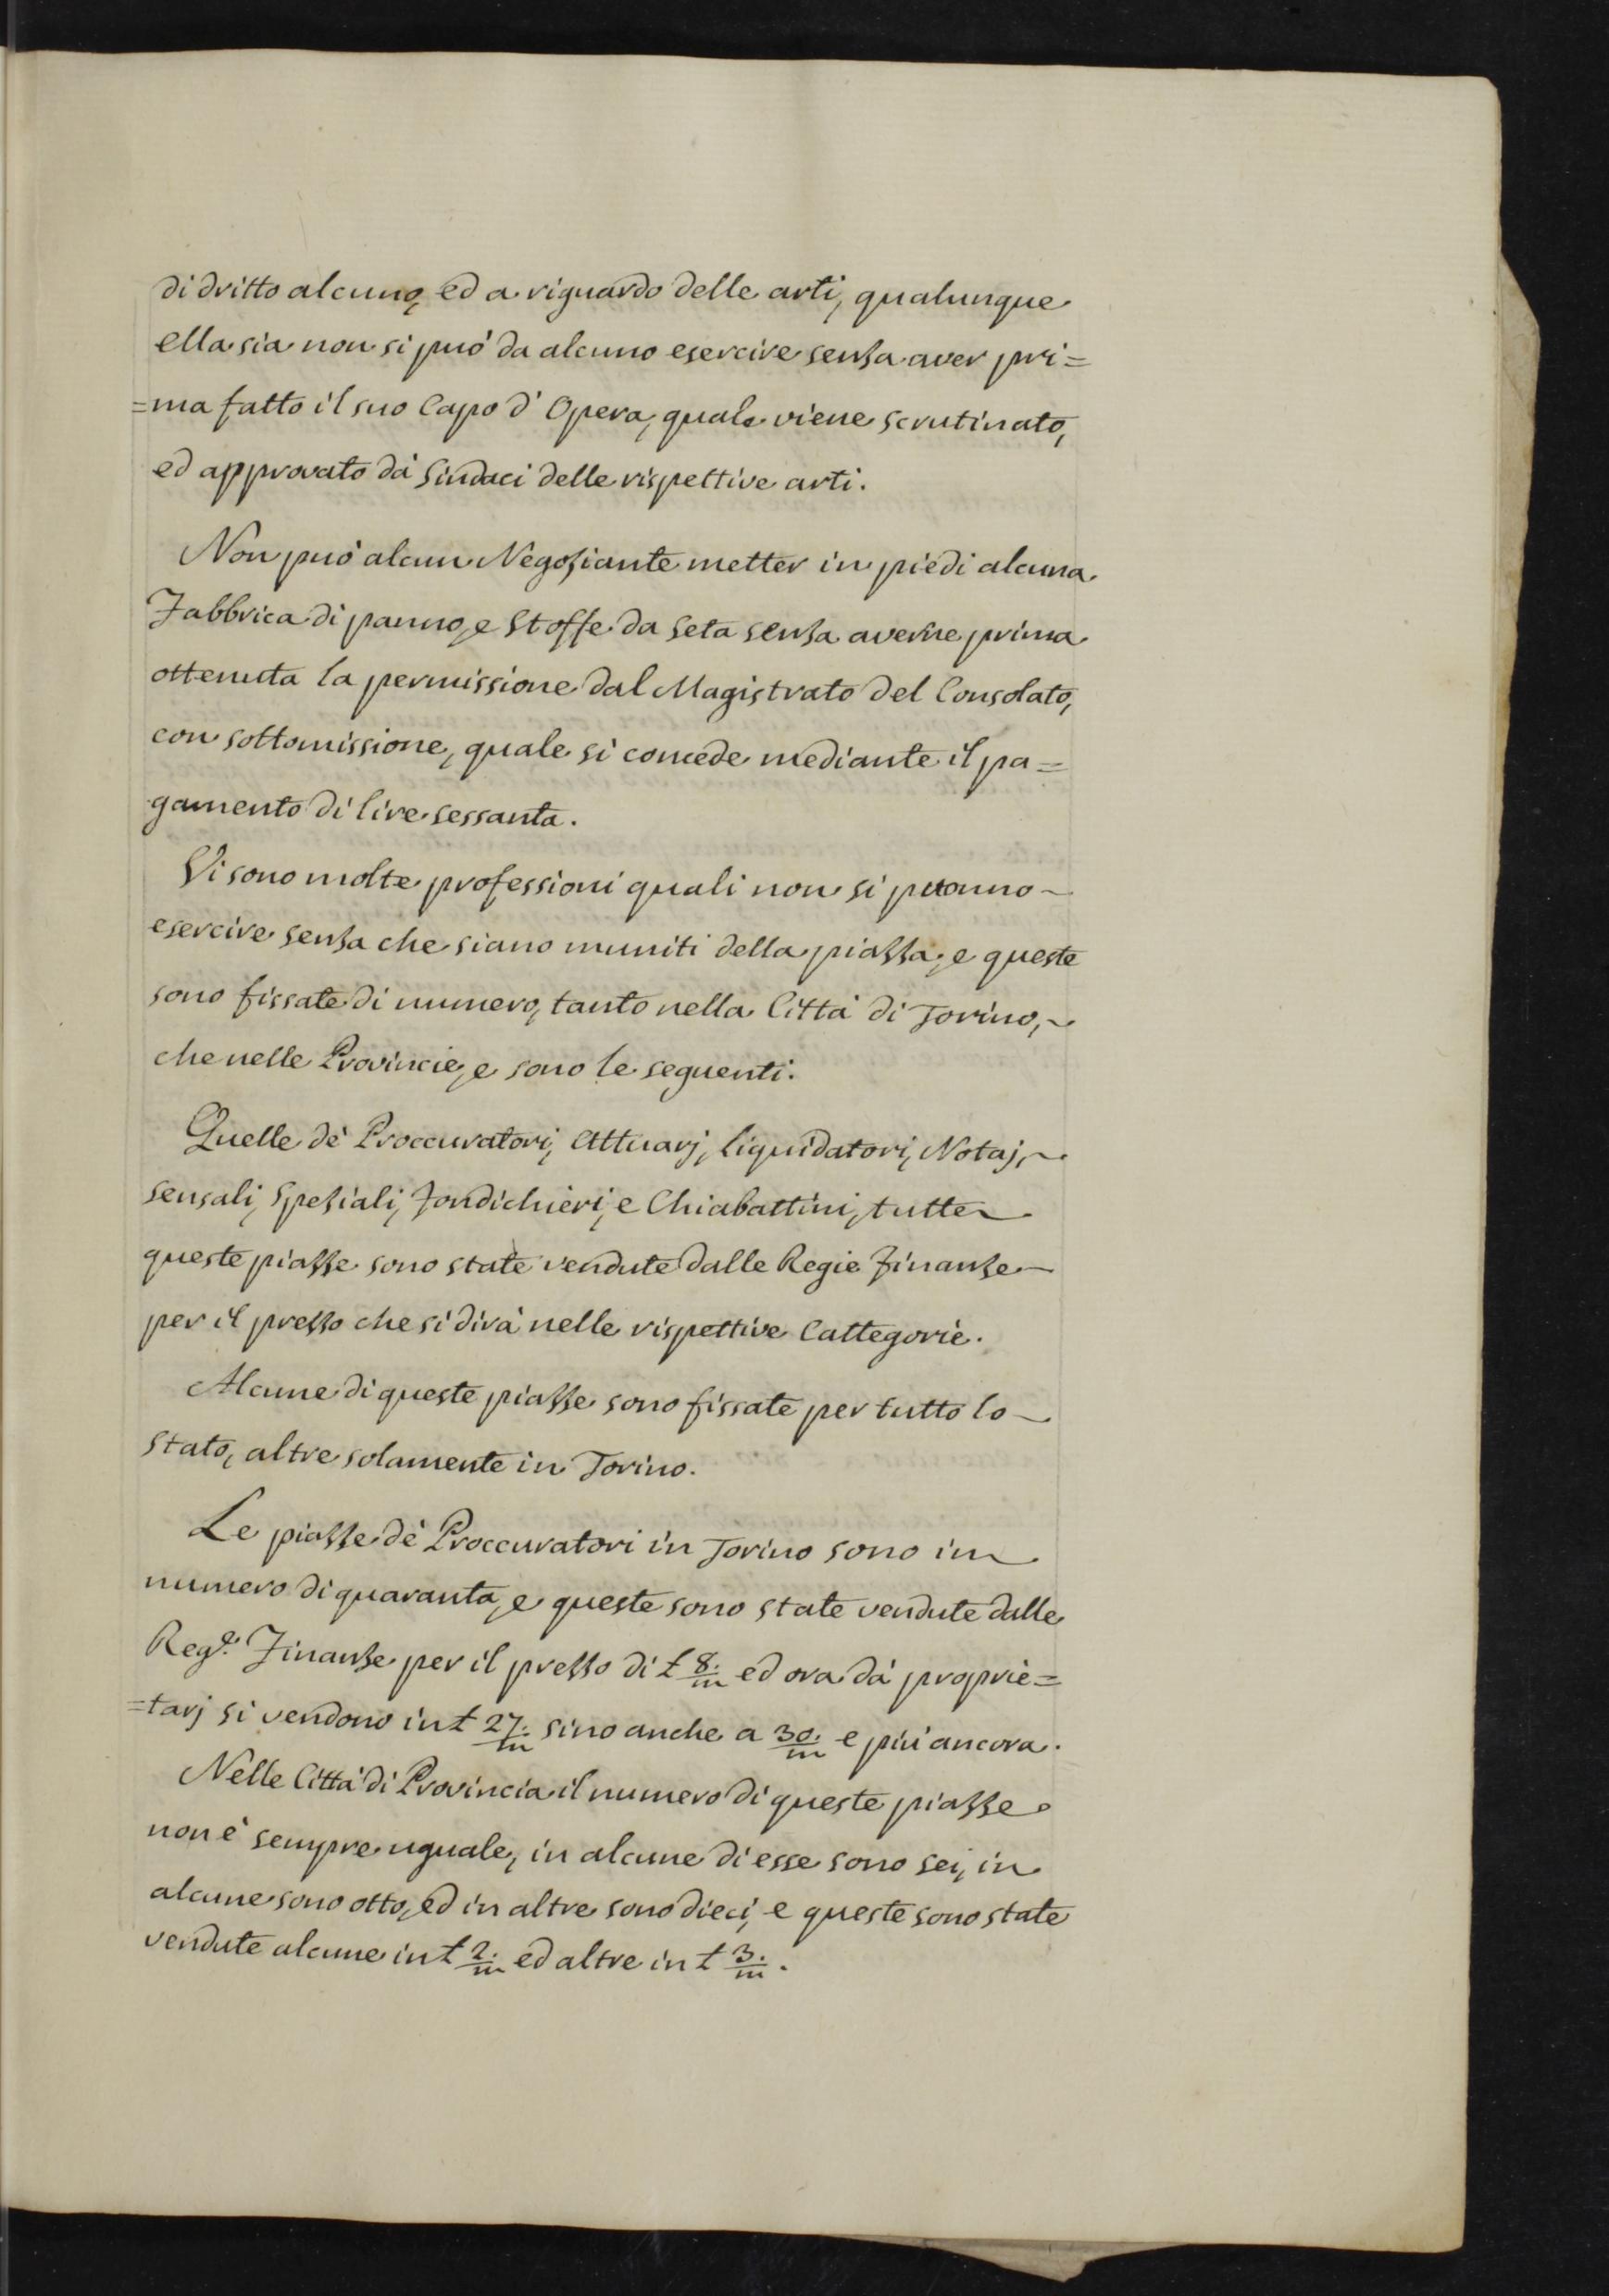 di dritto alcuno, ed a riguardo delle arti, qualunque
ella sia non si può da alcuno esercire senza aver pri=
=ma fatto il suo Capo d'Opera, quale viene scrutinato,
ed approvato da' Sindaci delle rispettive arti.
Non può alcun Negoziante metter in piedi alcuna
Fabbrica di panno, e Stoffe da seta senza averne prima
ottenuta la permissione dal Magistrato del Consolato,
con sottomissione, quale si concede mediante il pa=
gamento di lire sessanta.
Vi sono molte professioni quali non si puonno
esercire senza che siano muniti della piazza, e queste
sono fissate di numero, tanto nella Città di Torino,
che nelle Provincie, e sono le seguenti.
Quelle de' Proccuratori, Attuarj, Liquidatori, Notaj,
Sensali, Speziali, Fondichieri, e Chiabattini, tutte
queste piazze sono state vendute dalle Regie Finanze
per il prezzo che si dirà nelle rispettive Cattegorie.
Alcune di queste piazze sono fissate per tutto lo
Stato, altre solamente in Torino.
Le piazze de' Proccuratori in Torino sono in
numero di quaranta, e queste sono state vendute dalle
Reg.e Finanze per il prezzo di £ 8./m ed ora da' proprie=
=tarj si vendono in £ 27./m sino anche a 30./m e più ancora.
Nelle Città di Provincia il numero di queste piazze
non è sempre uguale, in alcune di esse sono sei, in
alcune sono otto, ed in altre sono dieci, e queste sono state
vendute alcune in £ 2./m ed altre in £ 3./m.